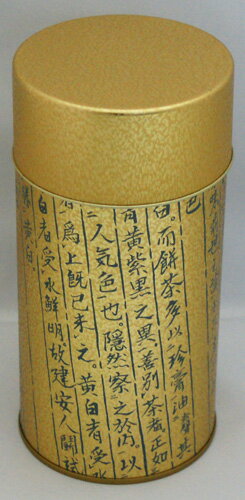 色
白。而餅茶多以珍膏油其
黃紫黑之異。善別茶者正如
人気色也。隱然察之於內。以
者爲上既已末之。黃白者受水
白者受水鮮明故建安人鬭試
黃白。